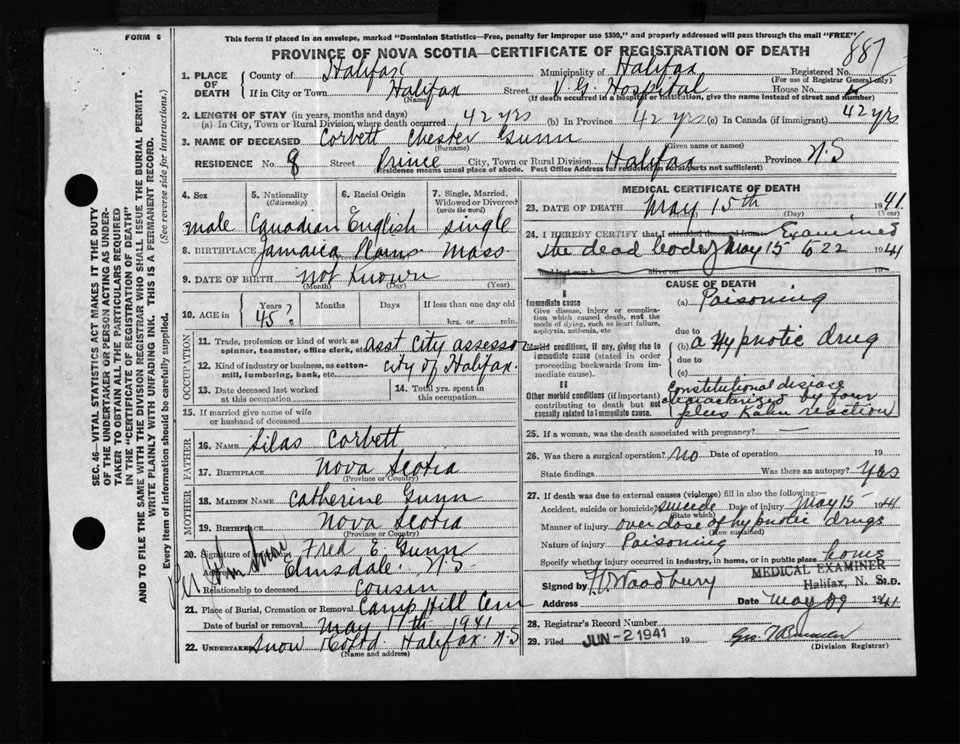 FORM 6
This form if placed in an envelope, marked "Dominion Statistics—Free, penalty for improper use $300," and properly addressed will pass through the mail "FREE"
PROVINCE OF NOVA SCOTIA—CERTIFICATE OF REGISTRATION OF DEATH
887
1. PLACE OF DEATH
County of Halifax Municipality of Halifax Registered No.
(For use of Registrar General only)
If in City or Town Halifax Street V. G. Hospital House No.
(Name) (If death occurred in a hospital or institution, give the name instead of street and number)
2. LENGTH OF STAY (in years, months and days)
(a) In City, Town or Rural Division, where death occurred 42 yrs (b) In Province 42 yrs (c) In Canada (if immigrant) 42 yrs
3. NAME OF DECEASED Corbett Chester Gunn
(Surname) (Given name or names)
RESIDENCE No. 8 Street Prince City, Town or Rural Division Halifax Province N.S
(Residence means usual place of abode. Post Office Address for residence in rural parts not sufficient)
4. Sex
male
5. Nationality
(Citizenship)
Canadian
6. Racial Origin
English
7. Single, Married, Widowed or Divorced
(write the word)
single
8. BIRTHPLACE Jamaica Plans Mass
9. DATE OF BIRTH not Known
(Month) (Day) (Year)
10. AGE in
Years 45?
Months
Days
If less than one day old
hrs. or min.
OCCUPATION
11. Trade, profession or kind of work as spinner, teamster, office clerk, etc. asst city assessor
12. Kind of industry or business, as cotton-mill, lumbering, bank, etc. city of Halifax.
13. Date deceased last worked at this occupation
14. Total yrs. spent in this occupation
15. If married give name of wife or husband of deceased
FATHER
16. NAME Silas Corbett
17. BIRTHPLACE Nova Scotia
(Province or Country)
MOTHER
18. MAIDEN NAME Catherine Gunn
19. BIRTHPLACE Nova Scotia
(Province or Country)
20. Signature of informant Fred E. Gunn
Elmsdale. N.S.
Relationship to deceased cousin
21. Place of Burial, Cremation or Removal Camp Hill Cem
Date of burial or removal May 17th 1941
22. UNDERTAKER Snow & Co Ltd. Halifax. N.S
(Name and address)
MEDICAL CERTIFICATE OF DEATH
23. DATE OF DEATH May 15th 1941.
(Day) (Year)
24. I HEREBY CERTIFY that I attended deceased from Examined
the dead body May 15 to 22 1941
CAUSE OF DEATH
I
Immediate cause
Give disease, injury or complication which caused death, not the mode of dying, such as heart failure, asphyxia, asthenia, etc
(a) Poisoning
due to
Morbid conditions, if any, giving rise to immediate cause (stated in order proceeding backwards from immediate cause).
(b) a Hypnotic drug
due to
(c)
II
Other morbid conditions (if important) contributing to death but not causally related to immediate cause.
constitutional disease
characterized by four
plus Kahn reaction
25. If a woman, was the death associated with pregnancy?
26. Was there a surgical operation? no Date of operation 19
State findings Was there an autopsy? Yes
27. If death was due to external causes (violence) fill in also the following:—
Accident, suicide or homicide? suicide Date of injury May 15 1941
(State which)
Manner of injury over dose of hypnotic drugs
(How sustained)
Nature of injury Poisoning
Specify whether injury occurred in industry, in home, or in public place home
Signed by Woodbury M.D.
MEDICAL EXAMINER
Halifax, N. S.
Address Date May 29 1941
28. Registrar's Record Number
29. Filed JUN - 2 1941 19
(Division Registrar)
SEC. 46—VITAL STATISTICS ACT MAKES IT THE DUTY
OF THE UNDERTAKER OR PERSON ACTING AS UNDER-
TAKER TO OBTAIN ALL THE PARTICULARS REQUIRED
IN THE "CERTIFICATE OF REGISTRATION OF DEATH"
AND TO FILE THE SAME WITH THE DIVISION REGISTRAR WHO SHALL ISSUE THE BURIAL PERMIT.
WRITE PLAINLY WITH UNFADING INK. THIS IS A PERMANENT RECORD.
Every item of information should be carefully supplied. (See reverse side for instructions.)